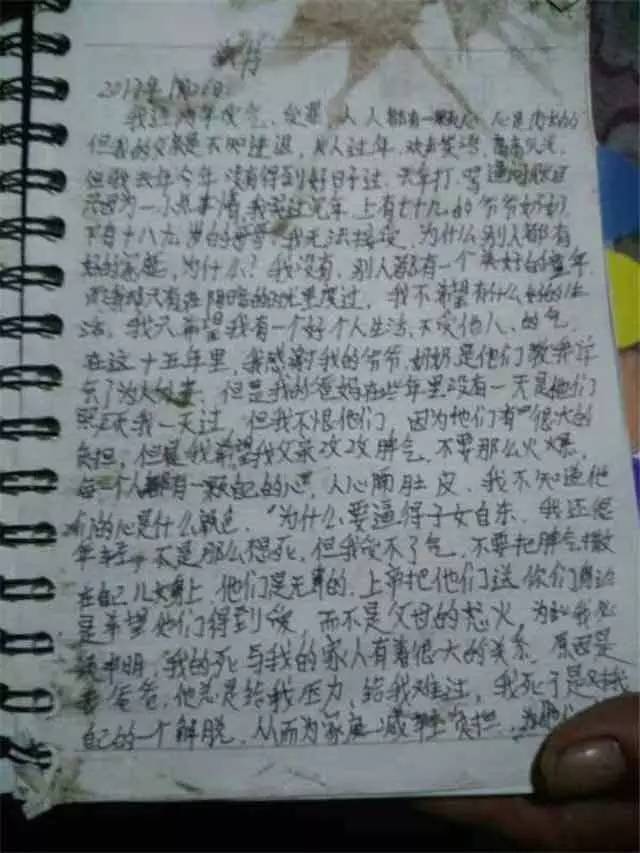 2017年1月26日
我这两年受气、受罪、人人都有一颗心,心是肉长的
但我的父亲是不知进退,别人过年,欢声笑语,高高兴兴,
但我去年今年没有得到好日子过,天天打,骂
只因为一小点事情,我 上有七十九的爷爷奶奶
下有十八九岁的哥哥,我无法接受,为什么别人都有
好的家庭,为什么?我没有,别人都有一个美好的童年
而我却只有在阴暗的 里度过,我不希望有什么好的生
活,我只希望我有一个好个人生活,不受他人、的气
在这十五年里,我感谢我的爷爷,奶奶是他们教我学
会了为人处事,但是我的爸妈在些年里没有一天是他们
我一天过,但我不恨他们,因为他们有很大的
负担,但是我希望我父亲改改脾气,不要那么火爆,
每一个人都有一颗自己的心,人心隔肚皮,我不知道他
们的心是什么颜色,为什么要逼得子女自杀,我还很
年轻,不是那么想死,但我受不了气,不要把脾气撒
在自己儿女身上,他们是无辜的,上帝把他们送你们身边
是希望他们得到 ,而不是父母的怒火,为此我
申明,我的死与我的家人有着很大的关系,原因是
我爸爸,他总是给我压力,给我难过,我死于是对我
自己的一个解脱,从而为家庭减轻负担,